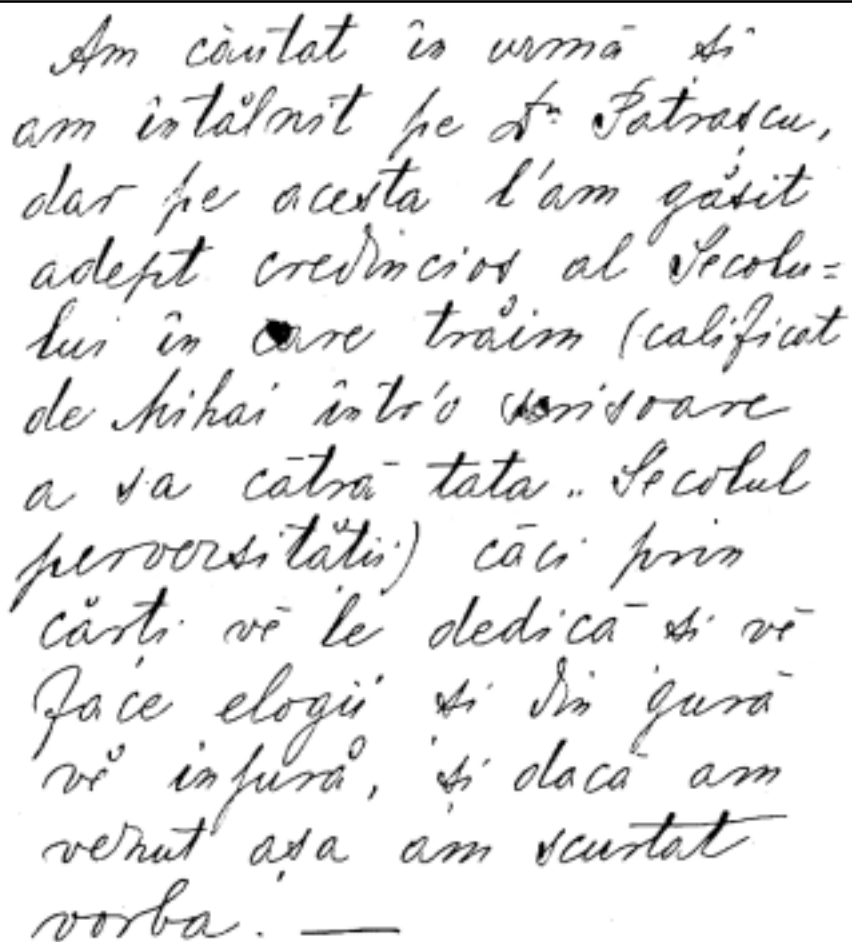 Am căutat în urmă si
am întâlnit pe Dr. Patrașcu,
dar pe acesta l'am găsit
adept credincios al Secolu=
lui în care trăim (calificat
de Mihai într'o scrisoare
a sa cătră tata „Secolul
perversitătii) căci prin
cărti vē le dedică si vē
face elogii si din gură
vĕ injură, si dacă am
vĕzut așa am scurtat
vorba. —